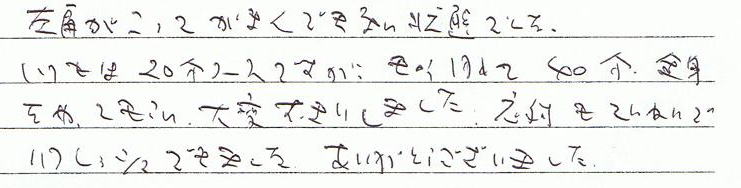 左肩がこって がまんできない状態でした。
いつもは20分コースですが、思い切って40分、全身
をやってもらい、大変すっきりしました。応対もていねいで
リラックスできました。ありがとうございました。